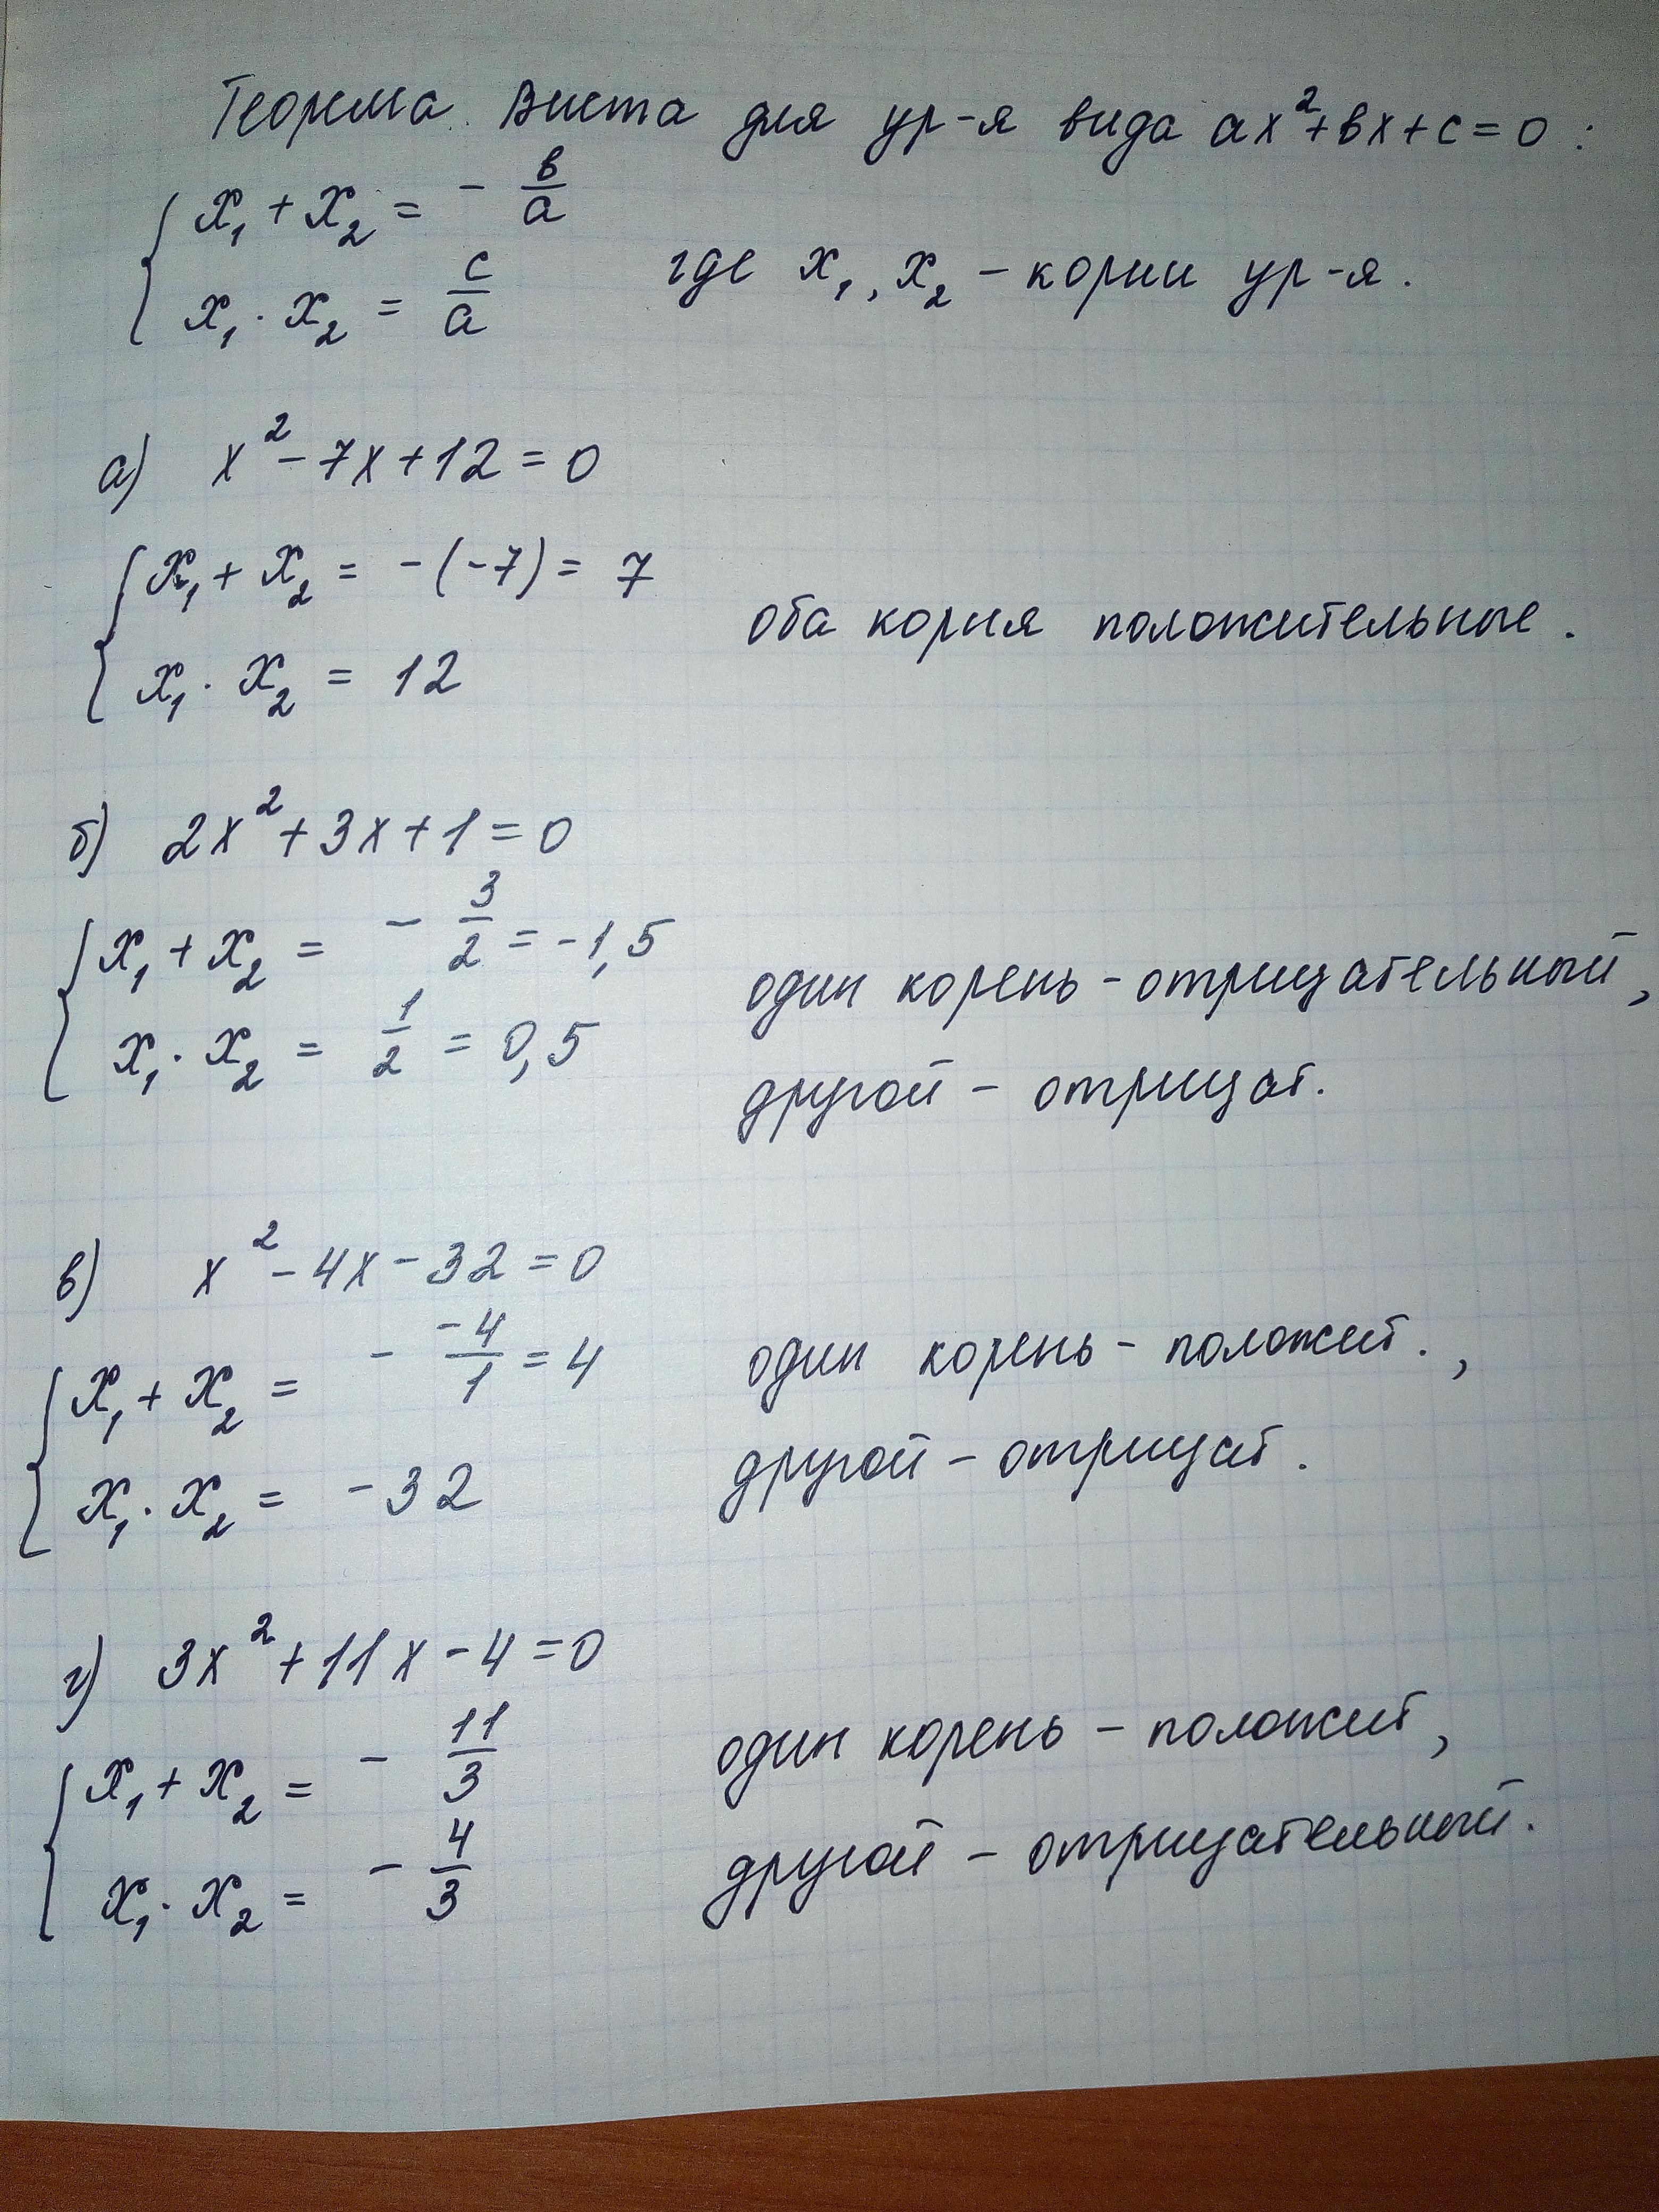 Теорема Виета для ур-я вида ax²+bx+c=0:
x₁ + x₂ = - b/a
x₁ · x₂ = c/a где x₁, x₂ - корни ур-я.
а) x² - 7x + 12 = 0
x₁ + x₂ = -(-7) = 7
оба корня положительные.
x₁ · x₂ = 12
б) 2x² + 3x + 1 = 0
x₁ + x₂ = - 3/2 = -1,5
один корень - отрицательный,
x₁ · x₂ = 1/2 = 0,5
другой - отрицат.
в) x² - 4x - 32 = 0
x₁ + x₂ = - -4/1 = 4
один корень - положит.,
x₁ · x₂ = -32
другой - отрицат.
г) 3x² + 11x - 4 = 0
x₁ + x₂ = - 11/3
один корень - положит,
x₁ · x₂ = - 4/3
другой - отрицательный.